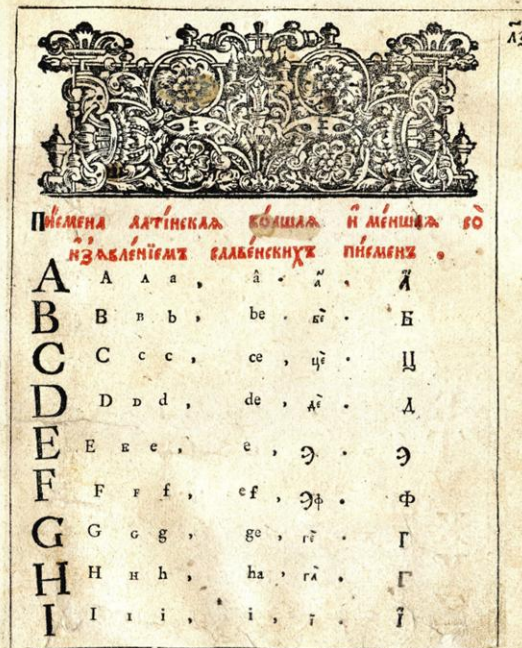 Пи́смена лати́нская бо́лшая и҆ ме́ншая со̀
и҆зѧвле́нїемъ славе́нскихъ пи́сменъ .
A A ᴀ a , â . а҆̀ . А҆̀
B B ʙ b , be . бѐ . Б
C C ᴄ c , ce , цѐ . Ц
D D ᴅ d , de , дѐ . Д
E E ᴇ e , e , э̀ . Э
F F ꜰ f , ef , эф . Ф
G G ɢ g , ge , гѐ . Г
H H ʜ h , ha , га̀ . Г
I I ɪ i , i , ї . Ї